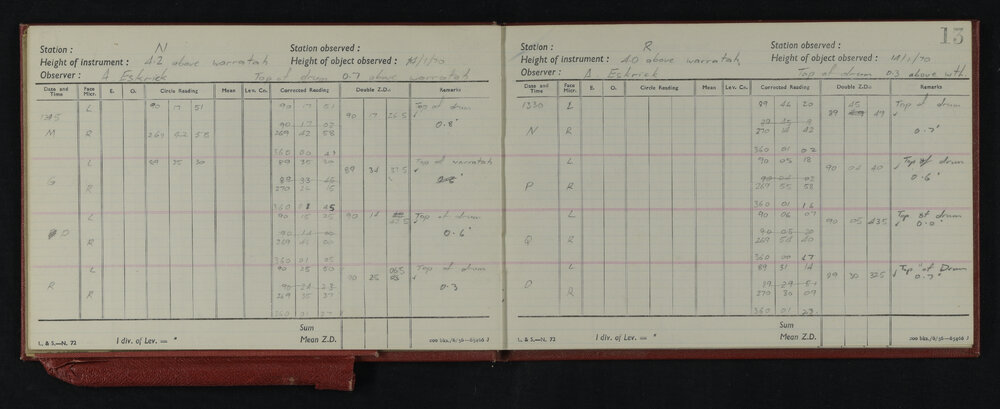 Station : N Station observed :
Height of instrument : 4.2 above warratah Height of object observed : 14/1/70
Observer : A Eskrick Top of drum 0.7 above warratah
Date and Time Face Micr. E. O. Circle Reading Mean Lev. Co. Corrected Reading Double Z.D. Remarks
1345 L 90 17 51 90 17 51 Top of drum
90 17 26.5
90 17 02 0.8'
M R 269 42 58 269 42 58
360 00 49
L 89 35 30 89 35 30 Top of warratah
89 34
G 89 33 45
R 270 26 15
360 01 45
L 90 15 25 90 14 Top of drum
90 14 00 0.6'
R 269 46 00
360 01 05
L 90 25 50 Top of drum
90 25
R 90 24 23 0.3
R 269 35 37
360 01 27
Sum
L. & S.—N. 72 1 div. of Lev. = " Mean Z.D. 200 bks./6/56—65466 J
13
Station : R Station observed :
Height of instrument : 4.0 above warratah Height of object observed : 14/1/70
Observer : A Eckrick Top of drum 0.3 above wth.
Date and Time Face Micr. E. O. Circle Reading Mean Lev. Co. Corrected Reading Double Z.D. Remarks
1330 L 89 46 20 Top of drum
89 45 49
0.7'
N R 270 14 42
360 01 02
L 90 05 18 Top of drum
90 04 40
90 04 02 0.6'
P R 269 55 58
360 01 16
L 90 06 07 Top of drum
90 05 43.5
90 05 20 0.0'
Q R 269 54 40
360 00 47
L 89 31 14 Top of Drum
89 30 32.5
89 29 51 0.7'
R 270 30 09
360 01 23
Sum
L. & S.—N. 72 1 div. of Lev. = " Mean Z.D. 200 bks./6/56—65466 J